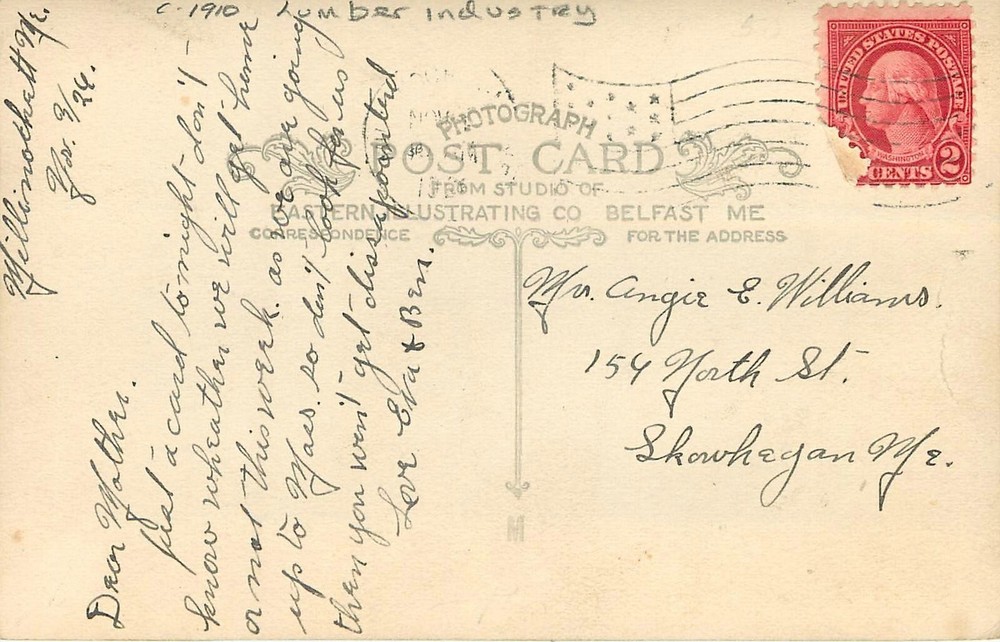 c. 1910 Lumber industry
UNITED STATES POSTAGE
WASHINGTON
2
CENTS
NOV
PHOTOGRAPH
POST CARD
FROM STUDIO OF
EASTERN ILLUSTRATING CO BELFAST ME
CORRESPONDENCE
FOR THE ADDRESS
Millinockett Me.
9/26.
Dear Mother.
Just a card tonight don't
know wheather we will get home
or not this week. as we are going
up to Mass. so don't look for us
then you won't get dissapointed
Love Eva & Ben.
Mr. Angie E. Williams.
154 North St.
Skowhegan Me.
M